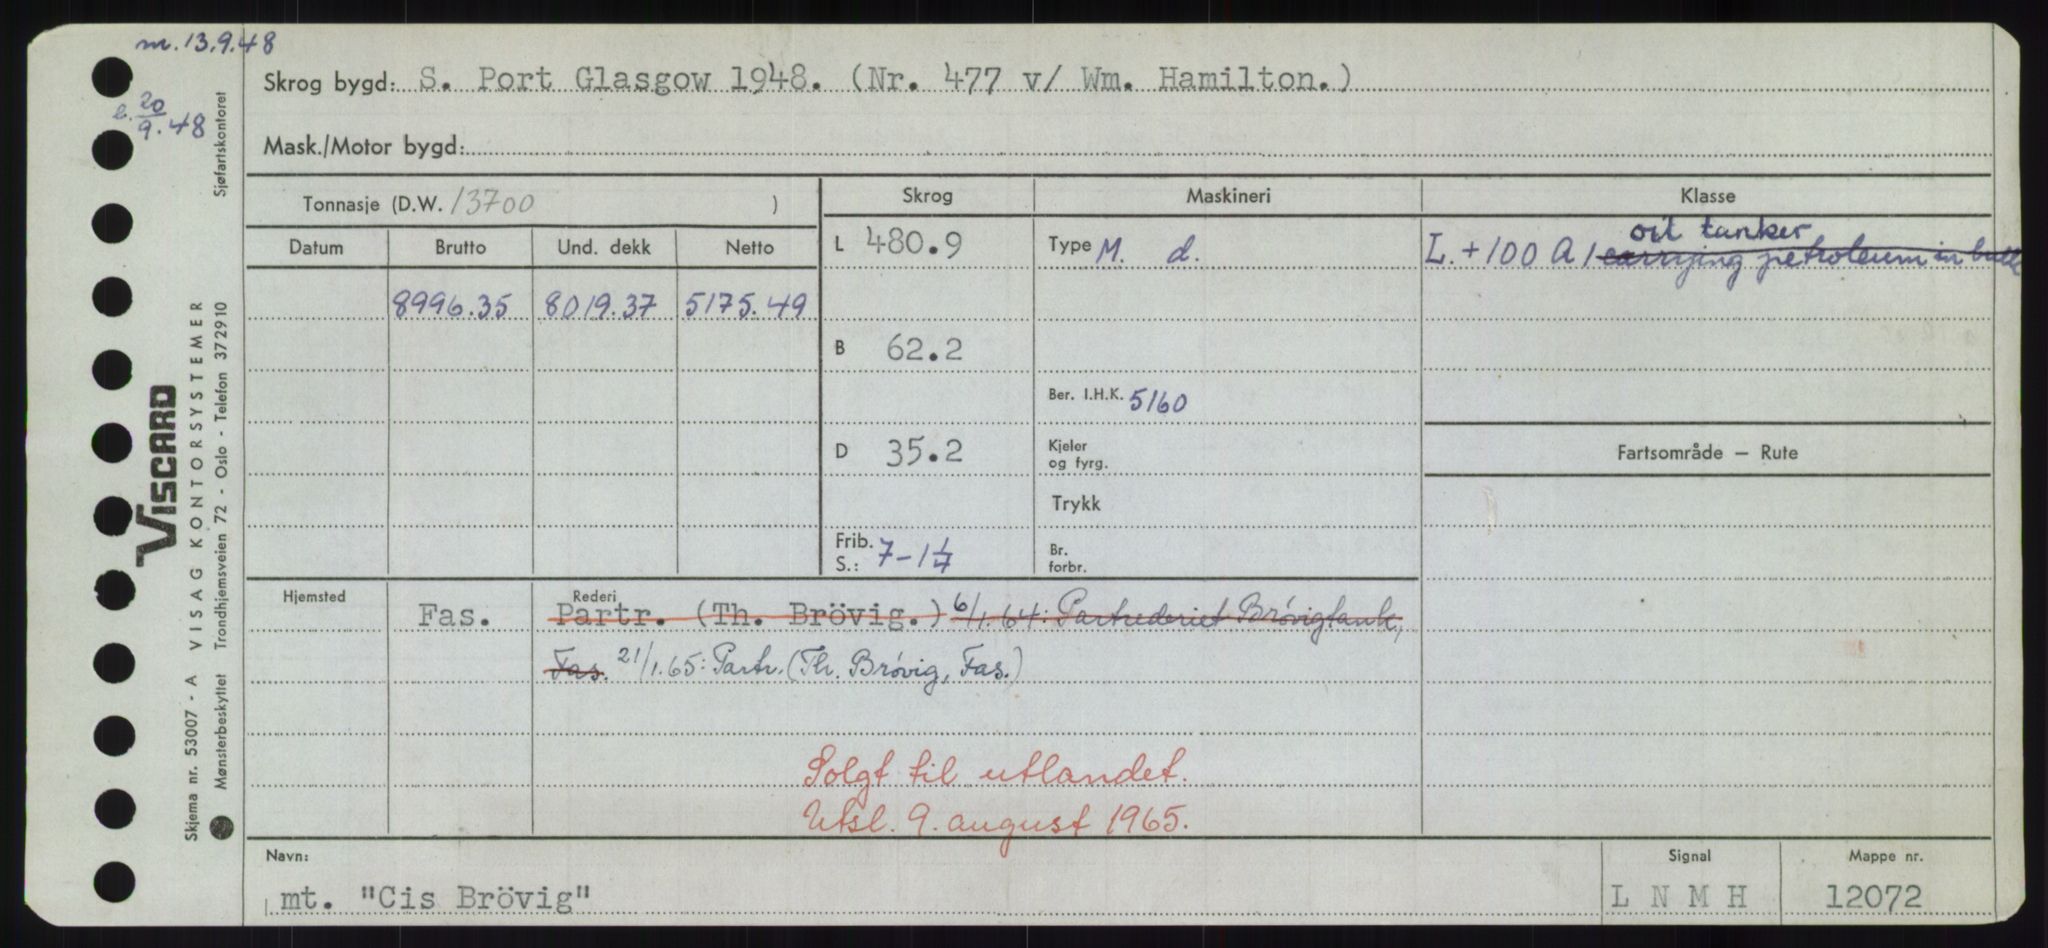 m. 13.9.48
b. 20/9.48
Skrog bygd: S. Port Glasgow 1948. (Nr. 477 v/ Wm. Hamilton.)
Mask./Motor bygd:
Tonnasje (D.W. 13700 )
Skrog
Maskineri
Klasse
Datum
Brutto
Und. dekk
Netto
8996.35
8019.37
5175.49
L 480.9
B 62.2
D 35.2
Frib. S.: 7-1 1/4
Type M. d.
Ber. I.H.K. 5160
Kjeler og fyrg.
Trykk
Br. forbr.
oil tanker
L. + 100 A 1 carrying petroleum in bulk
Fartsområde — Rute
Hjemsted
Fas.
Rederi
Partr. (Th. Brövig.) 6/1.64: Partrederiet Brøvigtank,
Fas. 21/1.65: Partr. (Th. Brøvig, Fas.)
Solgt til utlandet.
Utsl. 9. august 1965.
Navn:
mt. "Cis Brövig"
Signal
L N M H
Mappe nr.
12072
VISCARD
VISAG KONTORSYSTEMER
Sjøfartskontoret
Skjema nr. 53007 - A
Mønsterbeskyttet Trondhjemsveien 72 - Oslo - Telefon 372910